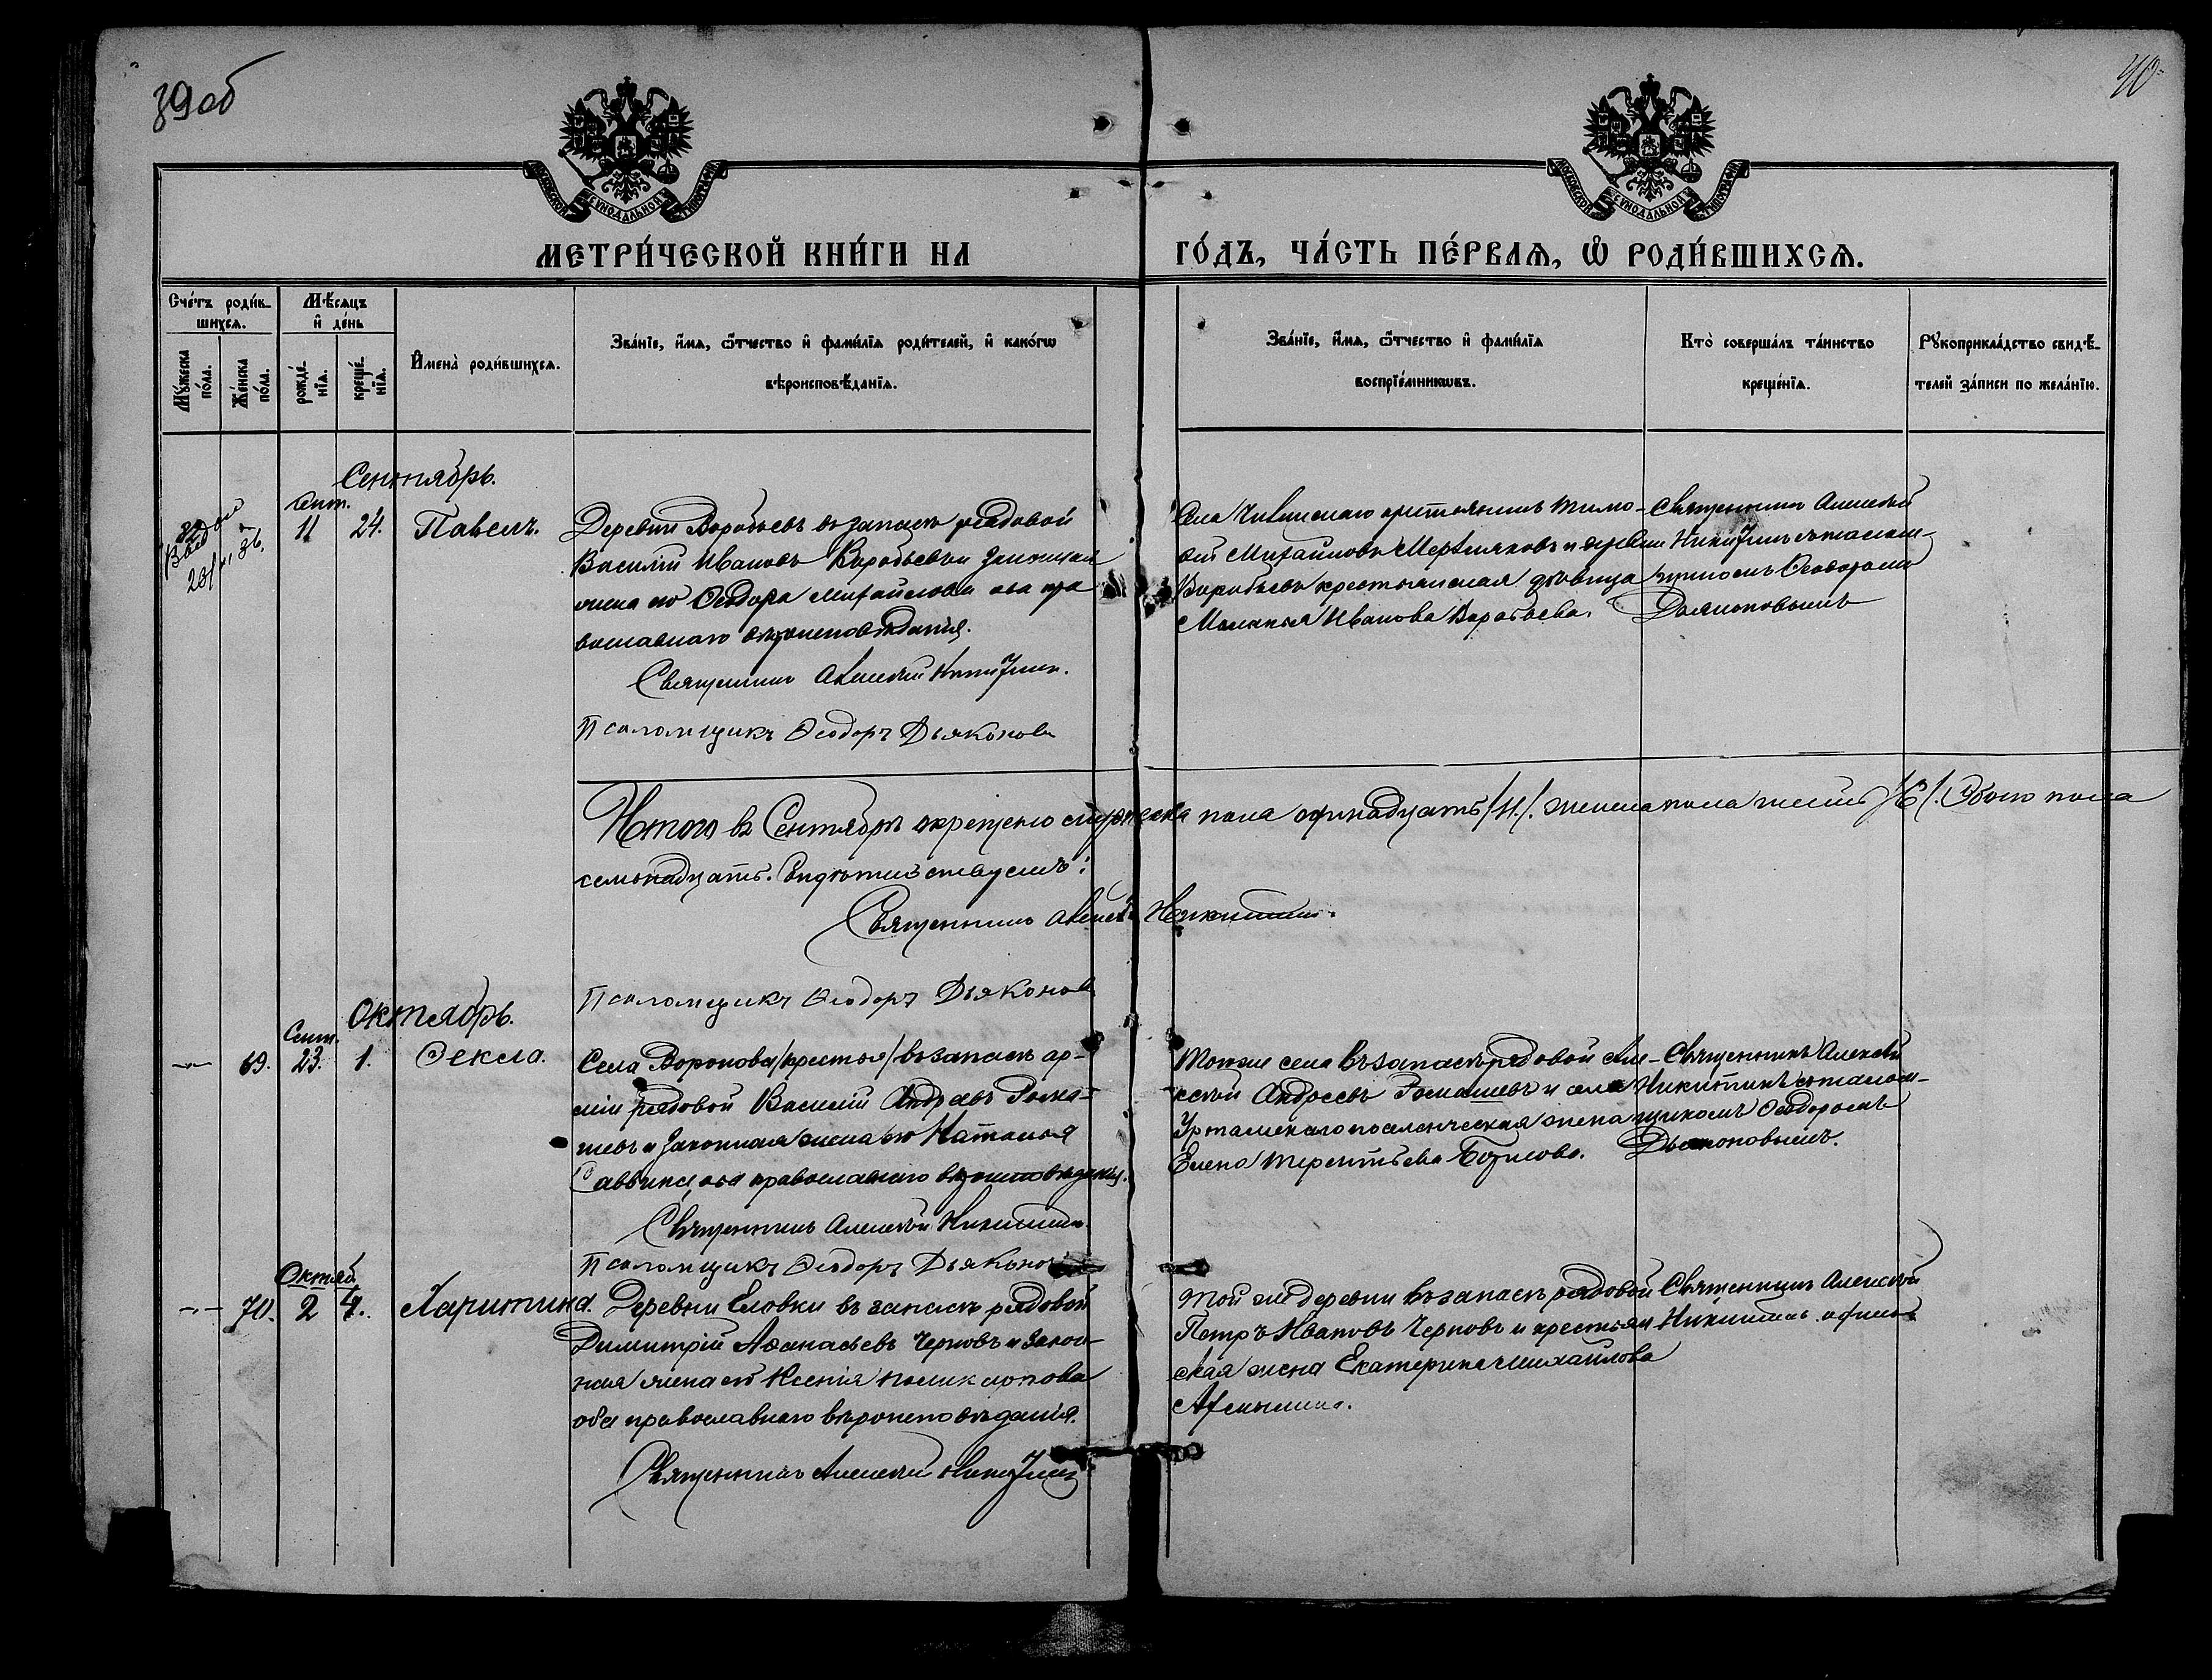 39 об
40
МОСКОВСКОЙ СѴНОДАЛЬНОЙ ТИПОГРАФІИ
МОСКОВСКОЙ СѴНОДАЛЬНОЙ ТИПОГРАФІИ
МЕТРИ́ЧЕСКОЙ КНИ́ГИ НА ГО́ДЪ, ЧА́СТЬ ПЕ́РВАѦ, Ѡ҆ РОДИ́ВШИХСѦ.
Сче́тъ роди́в-
шихсѧ.
Мꙋ́жеска по́ла.
Же́нска по́ла.
Мѣ́сѧцъ
и҆ де́нь
рожде́-
нїѧ.
креще́-
нїѧ.
И҆мена̀ роди́вшихсѧ.
Зва́нїе, и҆́мѧ, ѻ҆́тчество и҆ фами́лїѧ роди́телей, и҆ како́гѡ
вѣроисповѣ́данїѧ.
Зва́нїе, и҆́мѧ, ѻ҆́тчество и҆ фами́лїѧ
воспрїе́мникѡвъ.
Кто̀ соверша́лъ та́инство
креще́нїѧ.
Рꙋкоприкла́дство свидѣ́-
телей за́писи по жела́нїю.
Сентябрь.
Сент.
11 24. Павелъ.
Деревни Воробьевъ въ запасѣ рядовой
Василій Ивановъ Воробьевъ и законная
жена его Ѳеодора Михайлова оба пра
вославнаго вѣроисповѣданія.
Священникъ Алексѣй Никитинъ.
Псаломщикъ Ѳеодоръ Дьяконовъ
Села крестьянинъ Тимо-
ѳей Михайловъ и деревни
Воробьевъ крестьянская дѣвица
Меланья Иванова Воробьева.
Священникъ Алексѣй
Никитинъ съ псалом-
щикомъ Ѳеодоромъ
Дьяконовымъ
Итого въ Сентябрѣ окрещено мужеска пола одинадцать /11/. женска пола шесть /6/. Обоего пола
семьнадцать. свидѣтельствуемъ:
Священникъ Алексѣй Никитинъ.
Псаломщикъ Ѳеодоръ Дьяконовъ
Октябрь.
Сент.
— 69. 23. 1. Ѳекла.
Села Воронова /крестья/ въ запасѣ ар-
міи рядовой Василій Андреевъ Рома-
шевъ и законная жена его Наталья
Саввина, оба православнаго вѣроисповѣданія.
Священникъ Алексѣй Никитинъ.
Псаломщикъ Ѳеодоръ Дьяконовъ
Тогоже села въ запасѣ рядовой Але-
ксѣй Андреевъ Ромашевъ и села
Уртамскаго поселенческая жена
Елена Терентьева Борисова.
Священникъ Алексѣй
Никитинъ съ псалом-
щикомъ Ѳеодоромъ
Дьяконовымъ.
Октяб.
— 70. 2 4. Харитина.
Деревни Еловки въ запасѣ рядовой
Димитрій Аѳанасьевъ Черновъ и закон-
ная жена его Ксенія Поликарпова
оба православнаго вѣроисповѣданія.
Священникъ Алексѣй Никитинъ
Той же деревни въ запасѣ рядовой
Петръ Ивановъ Черновъ и крестьян
ская жена Екатерина Михайлова
Священникъ Алексѣй
Никитинъ одинъ